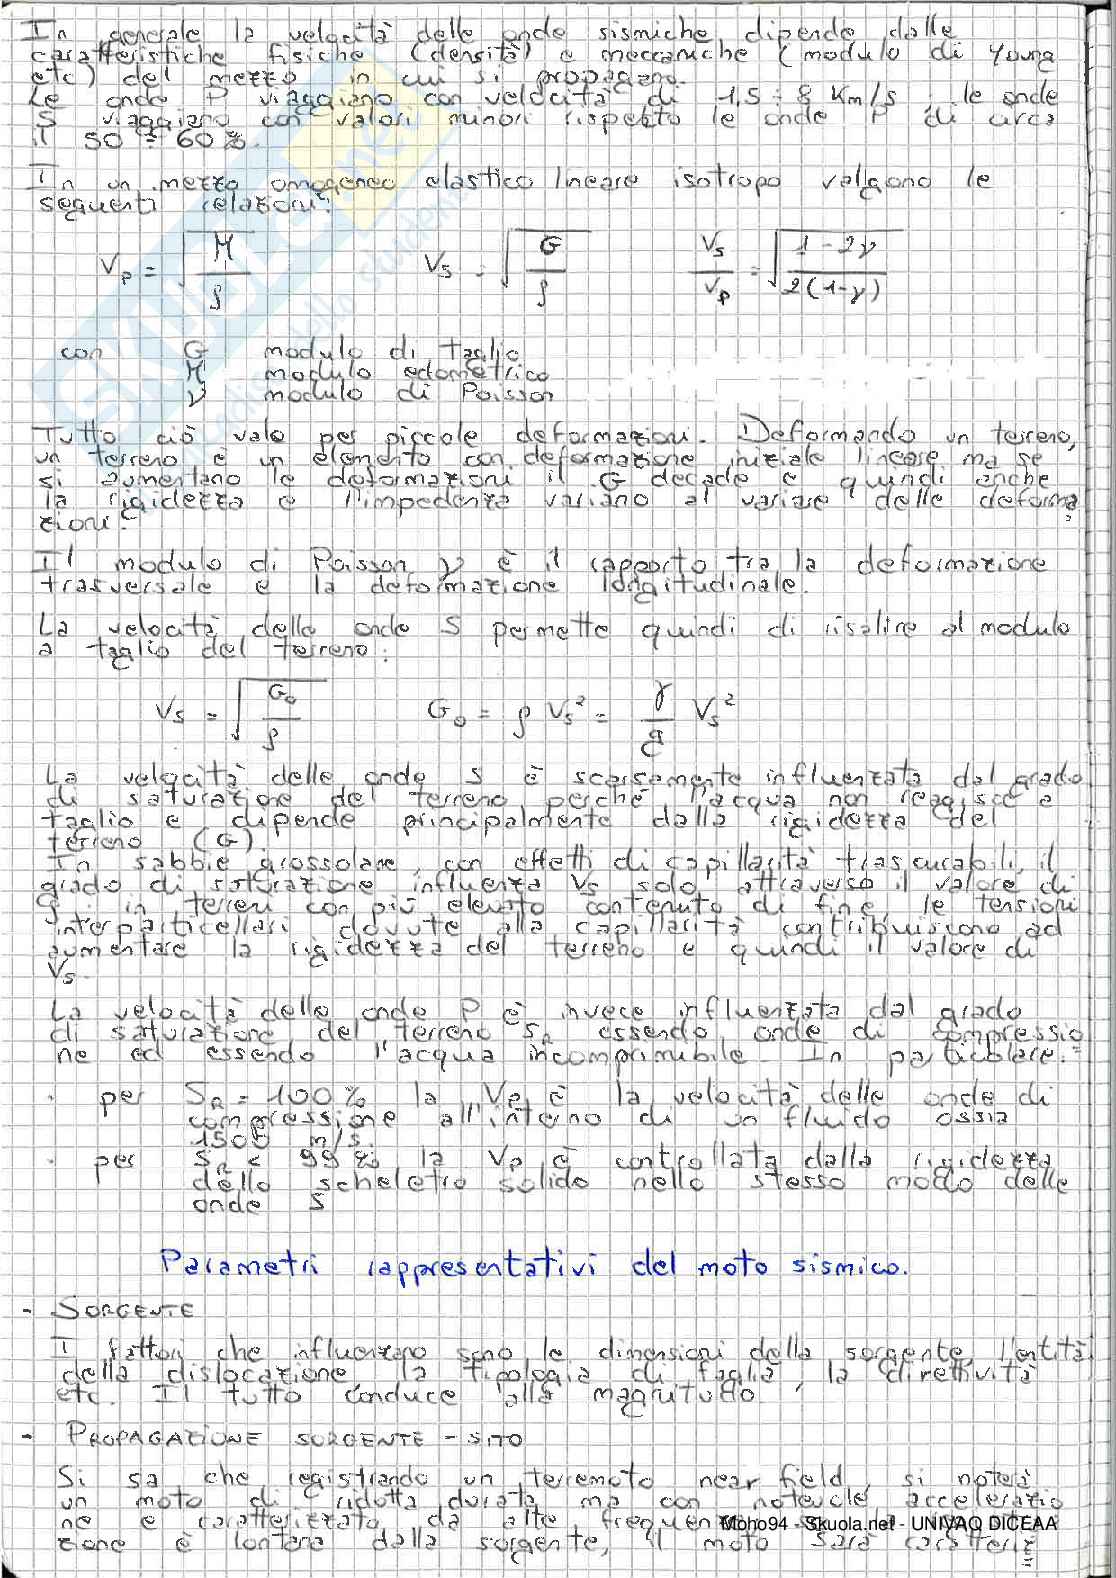 In generale la velocità delle onde sismiche dipende dalle
caratteristiche fisiche (densità) e meccaniche (modulo di Young
etc) del mezzo in cui si propagano.
Le onde P viaggiano con velocità di 1,5 ÷ 8 Km/s, le onde
S viaggiano con valori minori rispetto le onde P di circa
il 50 ÷ 60%.
In un mezzo omogeneo elastico lineare isotropo valgono le
seguenti relazioni:
Vp = √(M/ρ) Vs = √(G/ρ) Vs/Vp = √((1-2ν)/(2(1-ν)))
con G modulo di taglio
M modulo edometrico
ν modulo di Poisson
Tutto ciò vale per piccole deformazioni. Deformando un terreno,
un terreno è un elemento con deformazione iniziale lineare ma se
si aumentano le deformazioni il G decade e quindi anche
la rigidezza e l'impedenza variano al variare delle deforma
zioni.
Il modulo di Poisson ν è il rapporto tra la deformazione
trasversale e la deformazione longitudinale.
La velocità delle onde S permette quindi di risalire al modulo
a taglio del terreno:
Vs = √(G₀/ρ) G₀ = ρ Vs² = γ/g Vs²
La velocità delle onde S è scarsamente influenzata dal grado
di saturazione del terreno perché l'acqua non reagisce a
taglio e dipende principalmente dalla rigidezza del
terreno (G).
In sabbie grossolane, con effetti di capillarità trascurabili, il
grado di saturazione influenza Vs solo attraverso il valore di
ρ; in terreni con più elevato contenuto di fine, le tensioni
interparticellari dovute alla capillarità contribuiscono ad
aumentare la rigidezza del terreno e quindi il valore di
Vs.
La velocità delle onde P è invece influenzata dal grado
di saturazione del terreno SR essendo onde di compressio
ne ed essendo l'acqua incomprimibile. In particolare:
· per SR = 100% la Vp è la velocità delle onde di
compressione all'interno di un fluido ossia
1500 m/s.
· per SR < 99% la Vp è controllata dalla rigidezza
dello scheletro solido nello stesso modo delle
onde S
Parametri rappresentativi del moto sismico.
- SORGENTE
I fattori che influenzano sono le dimensioni della sorgente, l'entità
della dislocazione, la tipologia di faglia, la direttività
etc. Il tutto conduce alla magnitudo
- PROPAGAZIONE SORGENTE - SITO
Si sa che registrando un terremoto near field, si noterà
un moto di ridotta durata ma con notevole accelerazio
ne e caratterizzato da alte frequenze
Moho94 - Skuola.net - UNIVAQ DICEAA
zione è lontana dalla sorgente, il moto sarà caratteriz